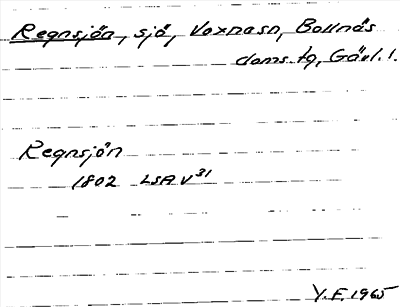 Regnsjön, sjö, Voxnasn, Bollnäs
doms.tg, Gävl. l.
Regnsjön
1802 LSA V 31
Y.F. 1965